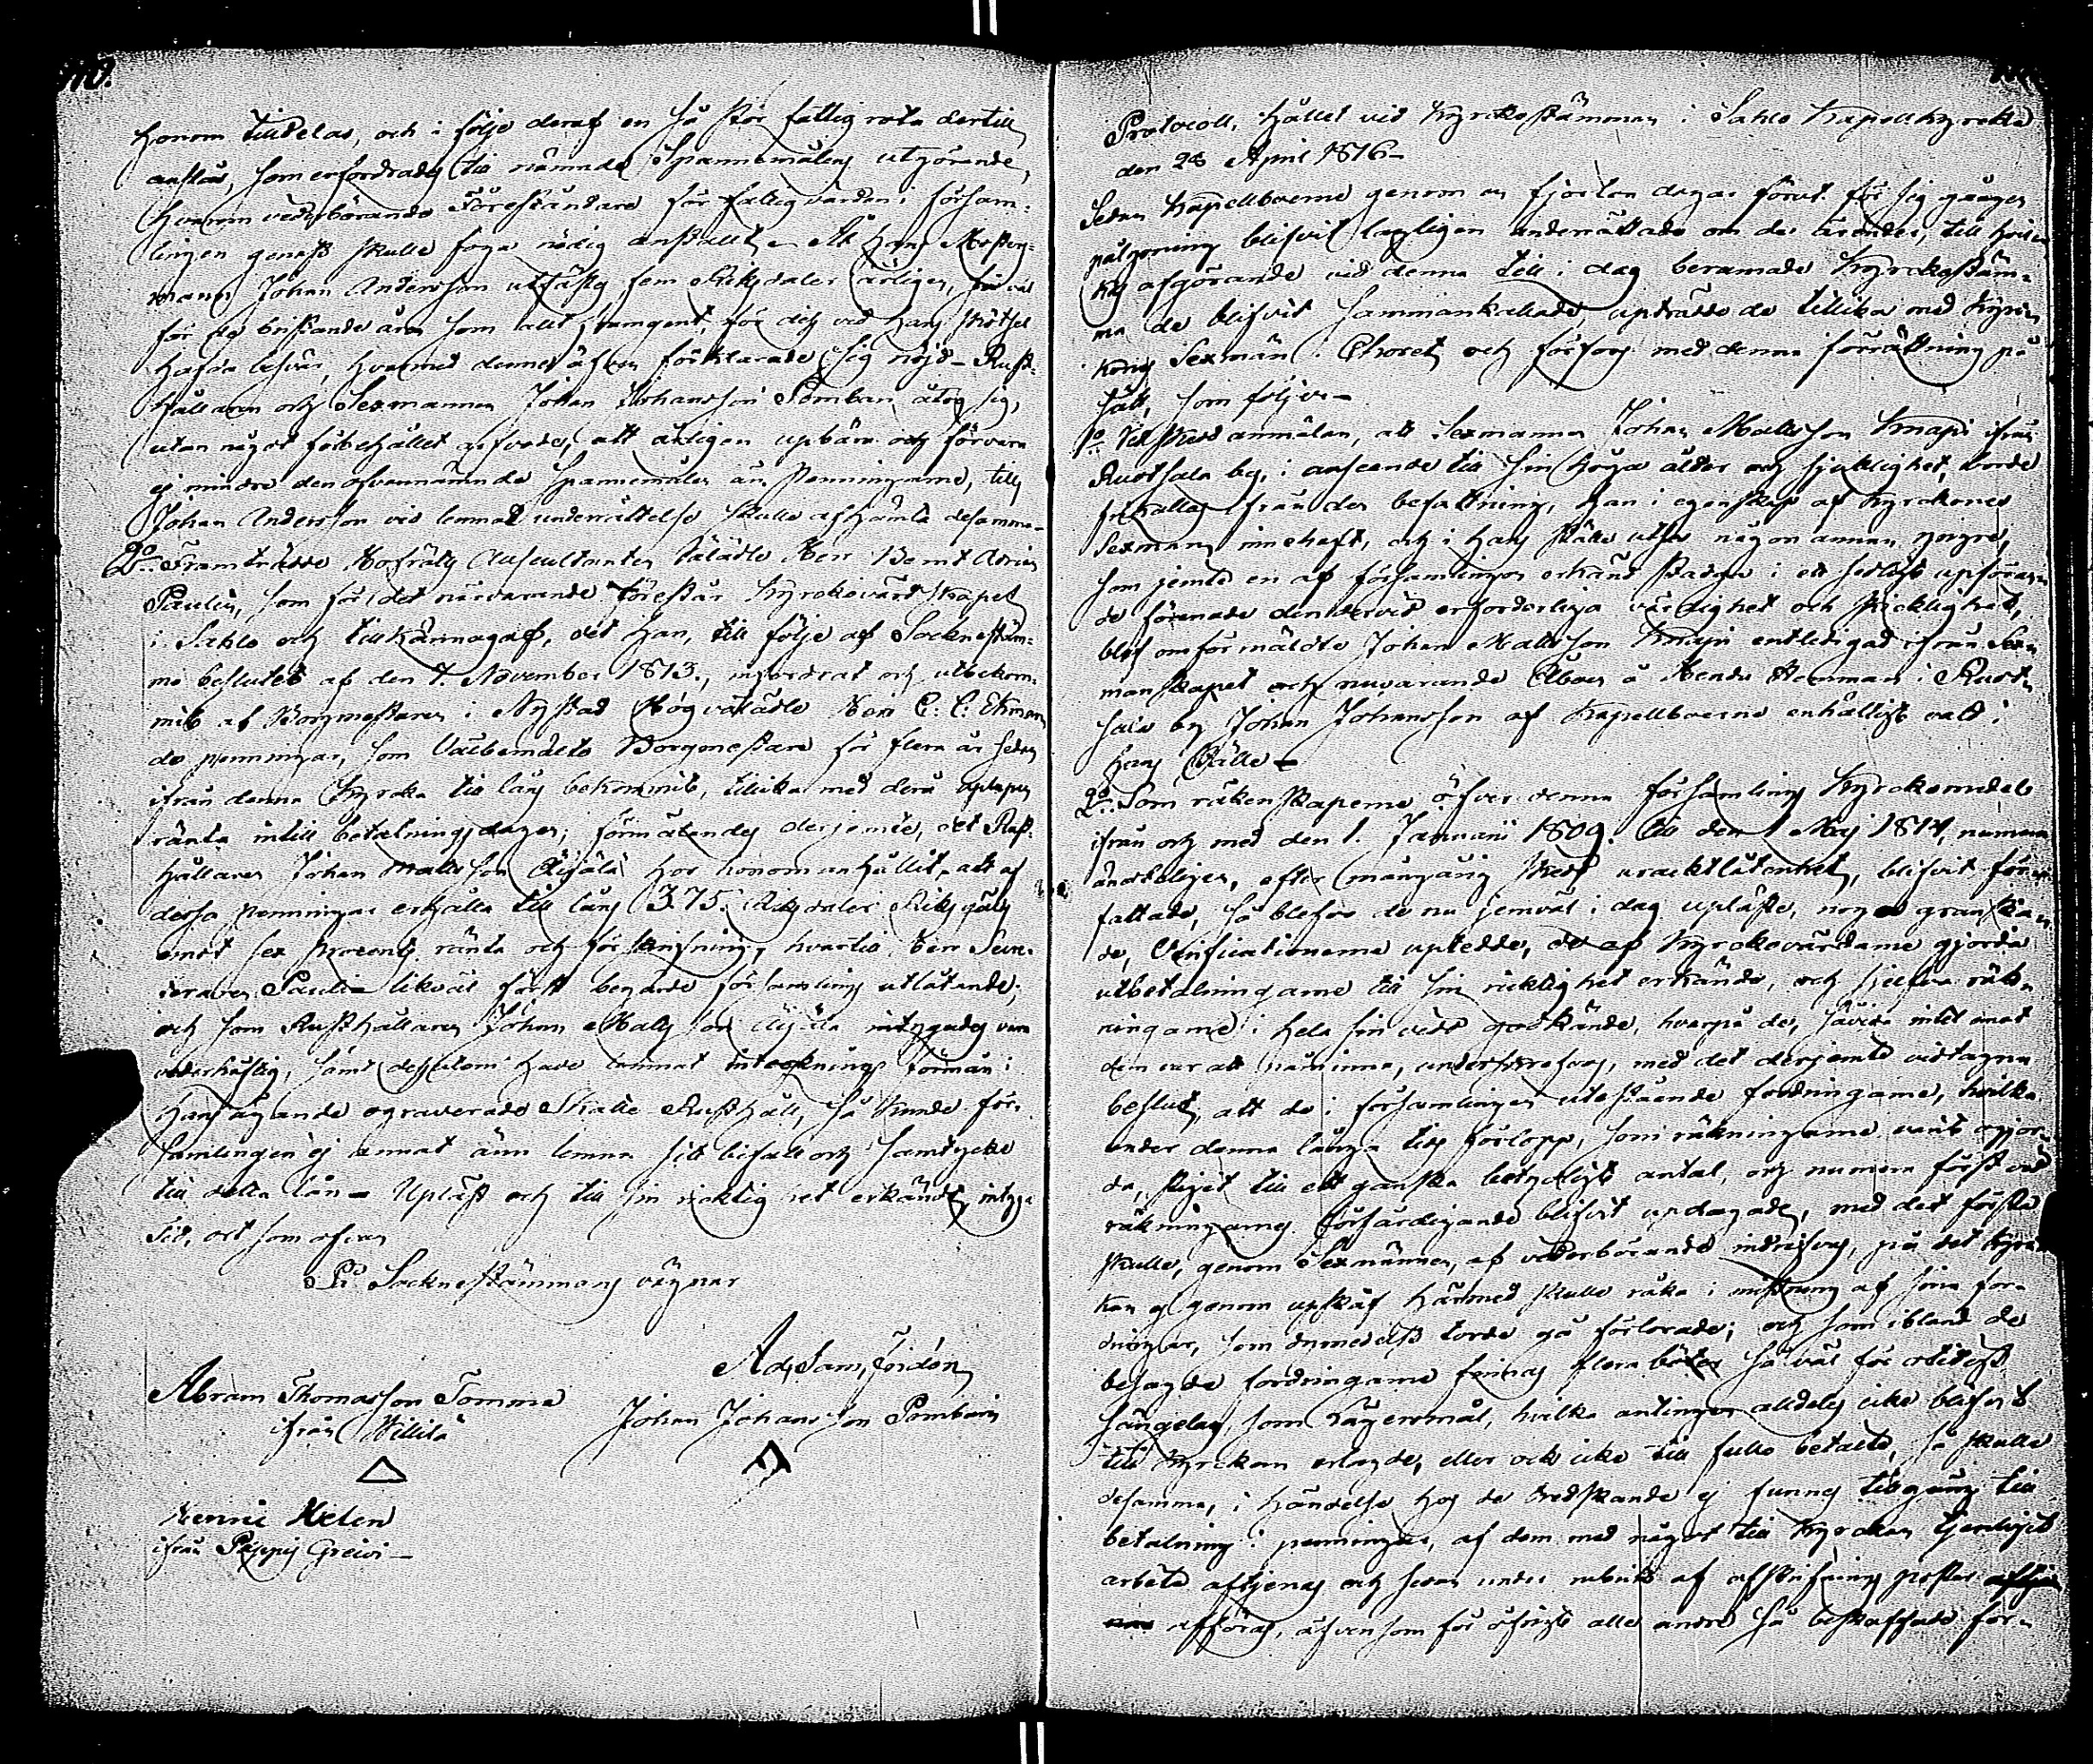 110.
honom tilldelas, och i följe deraf en så stor fattig rota dertill
anslås, som erfordrades till nämnde Spannemåls utgörande,
hvarom vederbörande Föreståndare för fattigvården i försam-
lingen genast skulle foga nödig anstallt. Åt
mann Johan Andersson utfästes fem Riksdaler årligen, så väl
för de bristande åren som allt framgent, för dess vid hans skötsel
hafda besvär, hvarmed denne äfven förklarade sig nöjd - Rust-
hållaren och Sexmannen Johan Johansson Pomberi åtog sig,
utan något förbehållet arfvode, att årligen upbära och förvara
ej mindre den ofvannämnde Spannemålen än Penningarne, till
Johan Andersson vid lemnad underrättelse skulle afhämta desamma -
2o. Framträdde Hofrätts Auscultanten Välädle Herr Bernt Adrian
Paulin, som för det närvarande förestår Kyrkovärdskapet
i Sahlo och tillkännagaf, det han, till följe af Sockneståm-
mo beslutet af den 7. November 1813., infordrat och utbekom-
mit af Borgmestaren i Nystad Högvälädle Herr C. C. Ekman
de penningar, som Välbemälte Borgmestare för flera år sedan
ifrån denna Kyrka till lån bekommit, tillika med derå uplupen
ränta intill betalningsdagen; förmälandes derjemte, det Rust-
hållaren Johan Mattsson Äijälä hos honom anhållit, att af
dessa penningar erhålla till låns 375. Riksdaler Riksgälds
emot sex procents ränta och försknifning, hvartill Herr
Paulin likväl först begärde församlings utlåtande;
och som Rusthållaren Johan Mattsson Äijälä intygades vara
vederhäftig, samt dessutom hade lemnat inteckning förmån i
hans ägande ograverade Skatte Rusthåll, så kunde för-
samlingen ej annat änn lemna sitt bifall och samtycke
till detta lån - Upläst och till sin riktighet erkändt, intyga
Tid, ort som ofvan
På Sockneståmmans vägnar
Ad. Sam. Foidén
Abram Thomasson Tomma
ifrån Willilä
Johan Johansson Pomberi
Henric Helen
ifrån Pappis Greivi -
Protocoll, hållet vid Kyrkostämman i Sahlo Kapellkyrka
den 28 April 1816 -
Sedan Kapellboerne genom en fjorton dagar förut för sig gången
pålysning blifvit lagligen underrättade om de ärender, till hvil-
kas afgörande vid denna till i dag beramade Kyrkostäm-
ma de blifvit sammankallade, uptrådde de tillika med Kyr-
kans Sexmän i Choret, och försors med denna förrättning på
sätt, som följer -
1o. Vid skedd anmälan, att Sexmannen Johan Mattsson Knapi ifrån
Ruotsala by, i anseende till sin höga ålder och sjuklighet, borde
frikallas från den befattning, han i egenskap af Kyrkones
Sexman innehaft, och i hans ställe utses någon annan yngre,
som jemte en af församlingen erkänd stadga i ett sedligt upföran-
de förenade den dervid erforderliga värdighet och skicklighet,
blef omförmälde Johan Mattsson Knapi entledigad ifrån Sex-
manskapet och nuvarande Åboen å Hendis Hemman i Ruot-
sala by Johan Johansson af Kapellboerne enhälligt vald i
hans ställe -
2o. Som räkenskaperne öfver denna församlings Kyrkomedel
ifrån och med den 1. Januarii 1809. till den 1 Maj 1814, numera
ändteligen, efter mångårig uraktlåtenhet, blifvit för-
fattade, så blefvo de nu jemväl i dag upläste, noga granska-
de, Verificationerna uptedde, de af Kyrkovärdarne gjorda
utbetalningarne till sin riktighet erkände, och sjelfva räk-
ningarne i hela sin vidd godkände, hvarpå de, såvida intet emot
dem var att påminna, underskrefvos, med det derjemte vidtagna
beslut, att de i församlingen utestående fordringarne, hvilka
under denna långa tids förlopp, som räkningarne varit ogjor-
da, stigit till ett ganska betydligt antal, och numera först vid
räkningarnes förfärdigande blifvit updagade, med det första
skulle, genom Sexmännen, af vederbörande indrifvas, på det Kyrk-
kan ej genom upskåf härmed skulle råka i mistning af sina for-
dringar, som derigenom torde gå förlorade; och som ibland de
besagde fordringarne finnas flera böter så väl för otidigt
sängelag, som lägersmål, hvilka antingen alldeles icke blifvit
till Kyrckan erlagde, eller ock icke till fullo betalte, så skulle
desamma, i händelse hos de bredskande ej funnes tillgång till
betalning i penningar, af dem med något till Kyrckan tjenligit
arbete aftjenas och sedan under rubrik af afskrifning poster
afföras, äfvensom för öfrigt alla andre så beskaffade for-